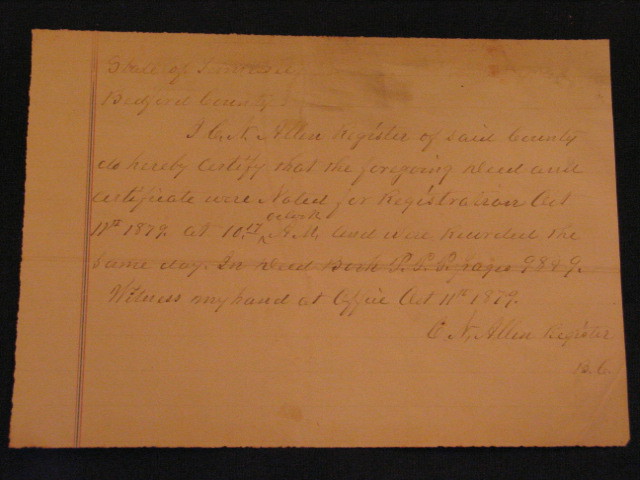 State of Tennessee,
Bedford County.
I C. N. Allen Register of said County
do hereby Certify that the foregoing Deed and
Certificate were Noted for Registration Oct
11th 1879. at 10. o'clock A.M, and were Recorded the
same day. In Deed Book P.P.P. pages 98 & 9.
Witness my hand at Office Oct 11th 1879.
C. N. Allen Register
B.C.